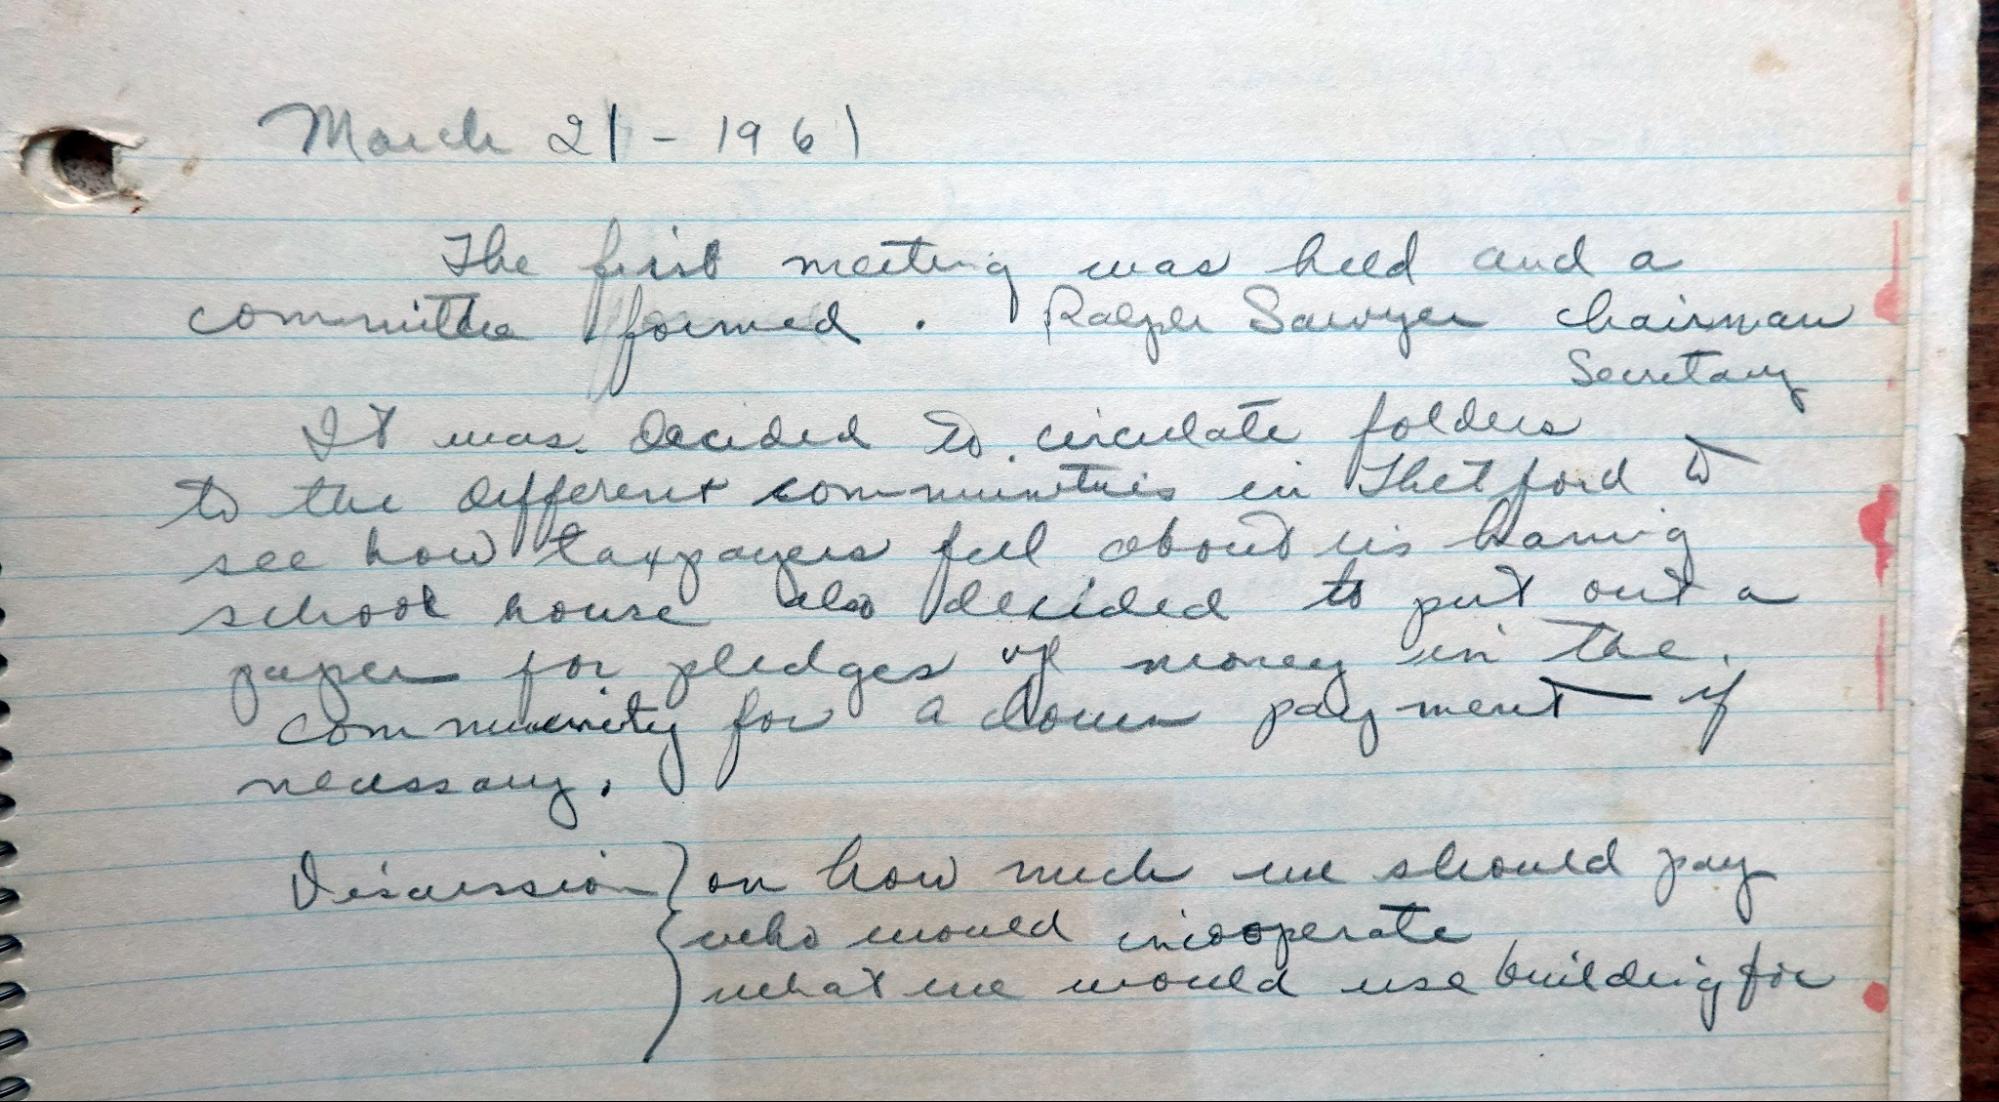 March 21 - 1961
The first meeting was held and a
committee formed. Ralph Sawyer chairman
Secretary
It was decided to circulate folders
to the different communities in Thetford to
see how taxpayers feel about us having
school house also decided to put out a
paper for pledges of money in the
community for a down payment - if
necessary.
Discussion } on how much we should pay
who would incooperate
what we would use building for